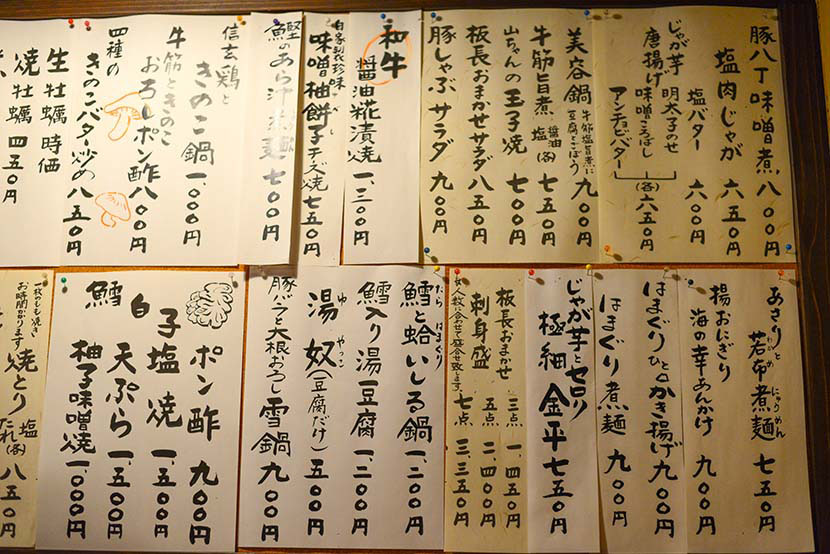 豚八丁味噌煮 八〇〇円
塩肉じゃが 六五〇円
塩バター 六〇〇円
じゃが芋 明太子のせ
唐揚げ 味噌ころばし (各) 六五〇円
アンチョビバター
美容鍋 牛筋塩旨煮に 豆腐とごぼう 九〇〇円
牛筋旨煮 醤油 塩 (各) 七五〇円
山ちゃんの玉子焼 七〇〇円
板長おまかせサラダ 八五〇円
豚しゃぶサラダ 九〇〇円
和牛
醤油糀漬焼 一、三〇〇円
自家製珍味
味噌柚餅子チーズ焼 七五〇円
鰹のあら汁煮麺 七〇〇円
信玄鶏と
きのこ鍋 一、〇〇〇円
牛筋ときのこ
おろしポン酢 八〇〇円
四種の
きのこバター炒め 八五〇円
生牡蠣 時価
焼牡蠣 四五〇円
あさりと
若布煮麺 七五〇円
わかめ にゅうめん
揚おにぎり
海の幸あんかけ 九〇〇円
はまぐりひと口かき揚げ 九〇〇円
はまぐり煮麺 九〇〇円
じゃが芋とセロリ
極細金平 七五〇円
板長おまかせ
刺身盛
三点 一、四五〇円
五点 二、四〇〇円
七点 三、三五〇円
人数に合わせて盛合せ致します。
鱈と蛤いしる鍋 一、二〇〇円
たら はまぐり
鱈入り湯豆腐 一、二〇〇円
湯奴(豆腐だけ) 五〇〇円
ゆ やっこ
豚バラと大根おろし 雪鍋 九〇〇円
鱈
白子
ポン酢 九〇〇円
塩焼 一、五〇〇円
天ぷら 一、五〇〇円
柚子味噌焼 一、〇〇〇円
一枚のしも焼き
お時間かかります
焼とり 塩 たれ (各) 八五〇円